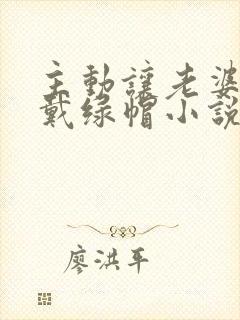 主動讓老婆
戴綠帽小說
廖洪平